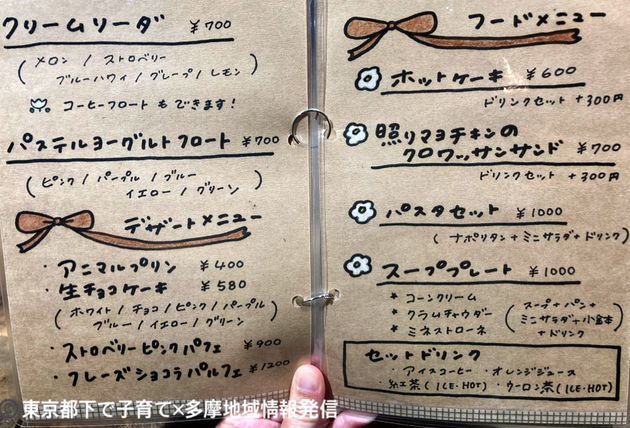 クリームソーダ ¥700
(メロン / ストロベリー
ブルーハワイ / グレープ / レモン)
コーヒーフロートもできます!
パステルヨーグルトフロート ¥700
(ピンク / パープル / ブルー
イエロー / グリーン)
デザートメニュー
・アニマルプリン ¥400
・生チョコケーキ ¥580
(ホワイト / チョコ / ピンク / パープル
ブルー / イエロー / グリーン)
・ストロベリーピンクパフェ ¥900
・フレーズショコラパルフェ ¥1200
フードメニュー
ホットケーキ ¥600
ドリンクセット +300円
照りマヨチキンの
クロワッサンサンド ¥700
ドリンクセット +300円
パスタセット ¥1000
(ナポリタン+ミニサラダ+ドリンク)
スーププレート ¥1000
* コーンクリーム
* クラムチャウダー
* ミネストローネ
(スープ+パン+
ミニサラダ+小鉢
+ドリンク)
セットドリンク
・アイスコーヒー ・オレンジジュース
・紅茶(ICE・HOT) ・ウーロン茶(ICE・HOT)
東京都下で子育て×多摩地域情報発信